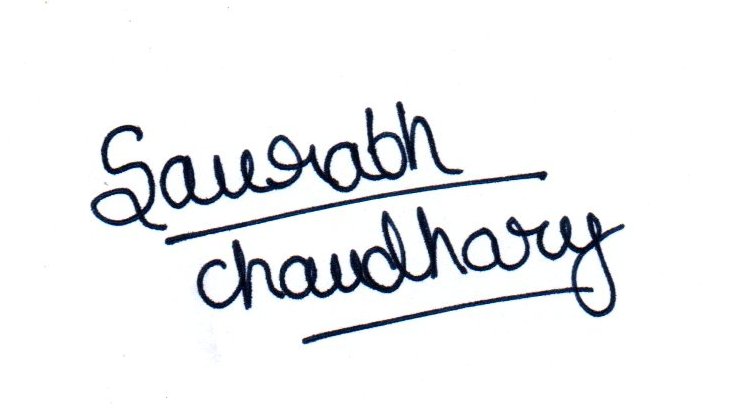 Saurabh
chaudhary